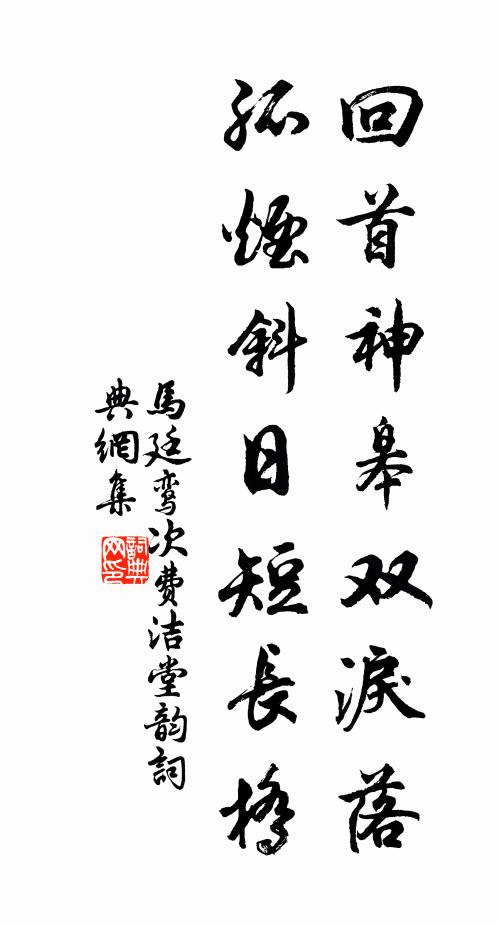 回首神皋双淚落
孤煙斜日短長橋
馬廷鸾次费洁堂韵詞
典網集
詞典网印